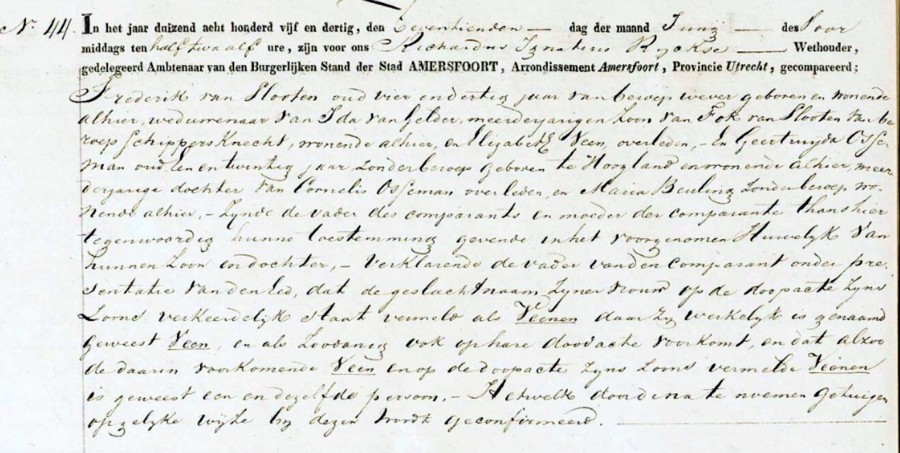 No. 44. In het jaar duizend acht honderd vijf en dertig, den Zeventienden dag der maand Juny des Voor
middags ten half twaalf ure, zijn voor ons Richardus Ignatius Ryckse Wethouder,
gedelegeerd Ambtenaar van den Burgerlijken Stand der Stad AMERSFOORT, Arrondissement Amersfoort, Provincie Utrecht, gecompareerd;
Frederik van Slooten oud vier en dertig jaar van beroep wever geboren en wonende
alhier, weduwenaar van Ida van Gelder, meerderjarigen Zoon van Fok van Slooten van be
roep schippersknecht, wonende alhier, en Elizabeth Veen, overleden, – En Geertruyda Osse
man oud een en twintig jaar Zonder beroep geboren te Hoogland en wonende alhier, meer
derjarige dochter van Cornelis Osseman overleden, en Maria Beuling Zonder beroep wo
nende alhier, – Zynde de vader des comparants en moeder der comparante thans hier
tegenwoordig hunne toestemming gevende in het voorgenomen Huwelyk van
hunnen Zoon en dochter, – Verklarende de vader van den Comparant onder pre
sentatie van den Eed, dat de geslachtnaam Zyner vrouw op de doopacte Zyns
Zoons verkeerdelyk staat vermeld als Veenen daar Zy werkelyk is genaamd
geweest Veen, en als Zoodanig ook op hare doodacte voorkomt, en dat alzoo
de daarin voorkomende Veen en op de doopacte Zyns Zoons vermelde Veenen
is geweest een en dezelfde persoon. – Hetwelk door de na te noemen getuigen
op gelyke wyze by dezen wordt geconfirmeerd.